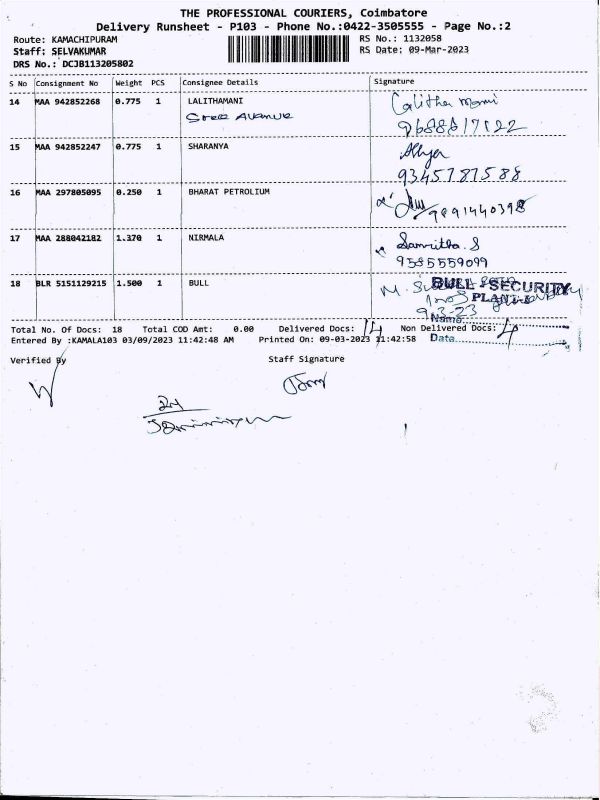 THE PROFESSIONAL COURIERS, Coimbatore
Delivery Runsheet - P103 - Phone No.:0422-3505555 - Page No.:2
Route: KAMACHIPURAM RS No.: 1132058
Staff: SELVAKUMAR RS Date: 09-Mar-2023
DRS No.: DC3B113205802
S No Consignment No Weight PCS Consignee Details Signature
14 MAA 942852268 0.775 1 LALITHAMANI Lalitha mani
Sree Avenue 9688817122
15 MAA 942852247 0.775 1 SHARANYA
9345787588
16 MAA 297805095 0.250 1 BHARAT PETROLIUM
9891440398
17 MAA 288042182 1.370 1 NIRMALA Samritha.S
9585559099
18 BLR 5151129215 1.500 1 BULL BULL - SECURITY
PLANT
9-3-23
Name
Total No. Of Docs: 18 Total COD Amt: 0.00 Delivered Docs: 14 Non Delivered Docs: 4
Entered By :KAMALA103 03/09/2023 11:42:48 AM Printed On: 09-03-2023 11:42:58 Data
Verified By Staff Signature